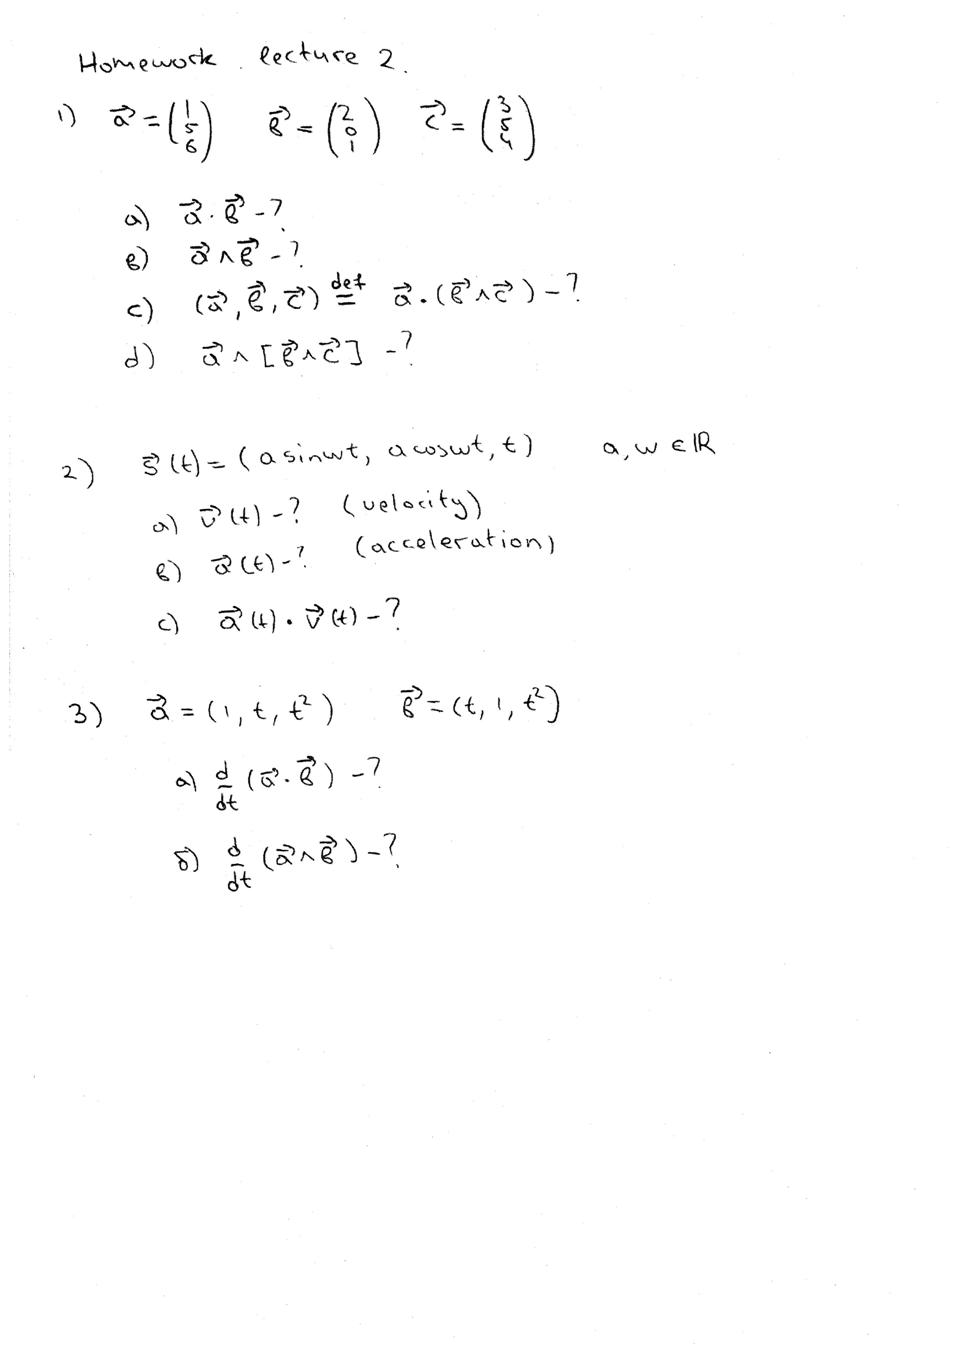 Homework lecture 2.
1) a⃗ = (1 5 6) в⃗ = (2 0 1) c⃗ = (3 5 4)
a) a⃗ · в⃗ - ?
в) a⃗ ∧ в⃗ - ?
c) (a⃗, в⃗, c⃗) def= a⃗ · (в⃗ ∧ c⃗) - ?
d) a⃗ ∧ [в⃗ ∧ c⃗] - ?
2) s⃗(t) = (a sinwt, a coswt, t) a, w ∈ ℝ
a) v⃗(t) - ? (velocity)
в) a⃗(t) - ? (acceleration)
c) a⃗(t) · v⃗(t) - ?
3) a⃗ = (1, t, t²) в⃗ = (t, 1, t²)
a) d/dt (a⃗ · в⃗) - ?
б) d/dt (a⃗ ∧ в⃗) - ?